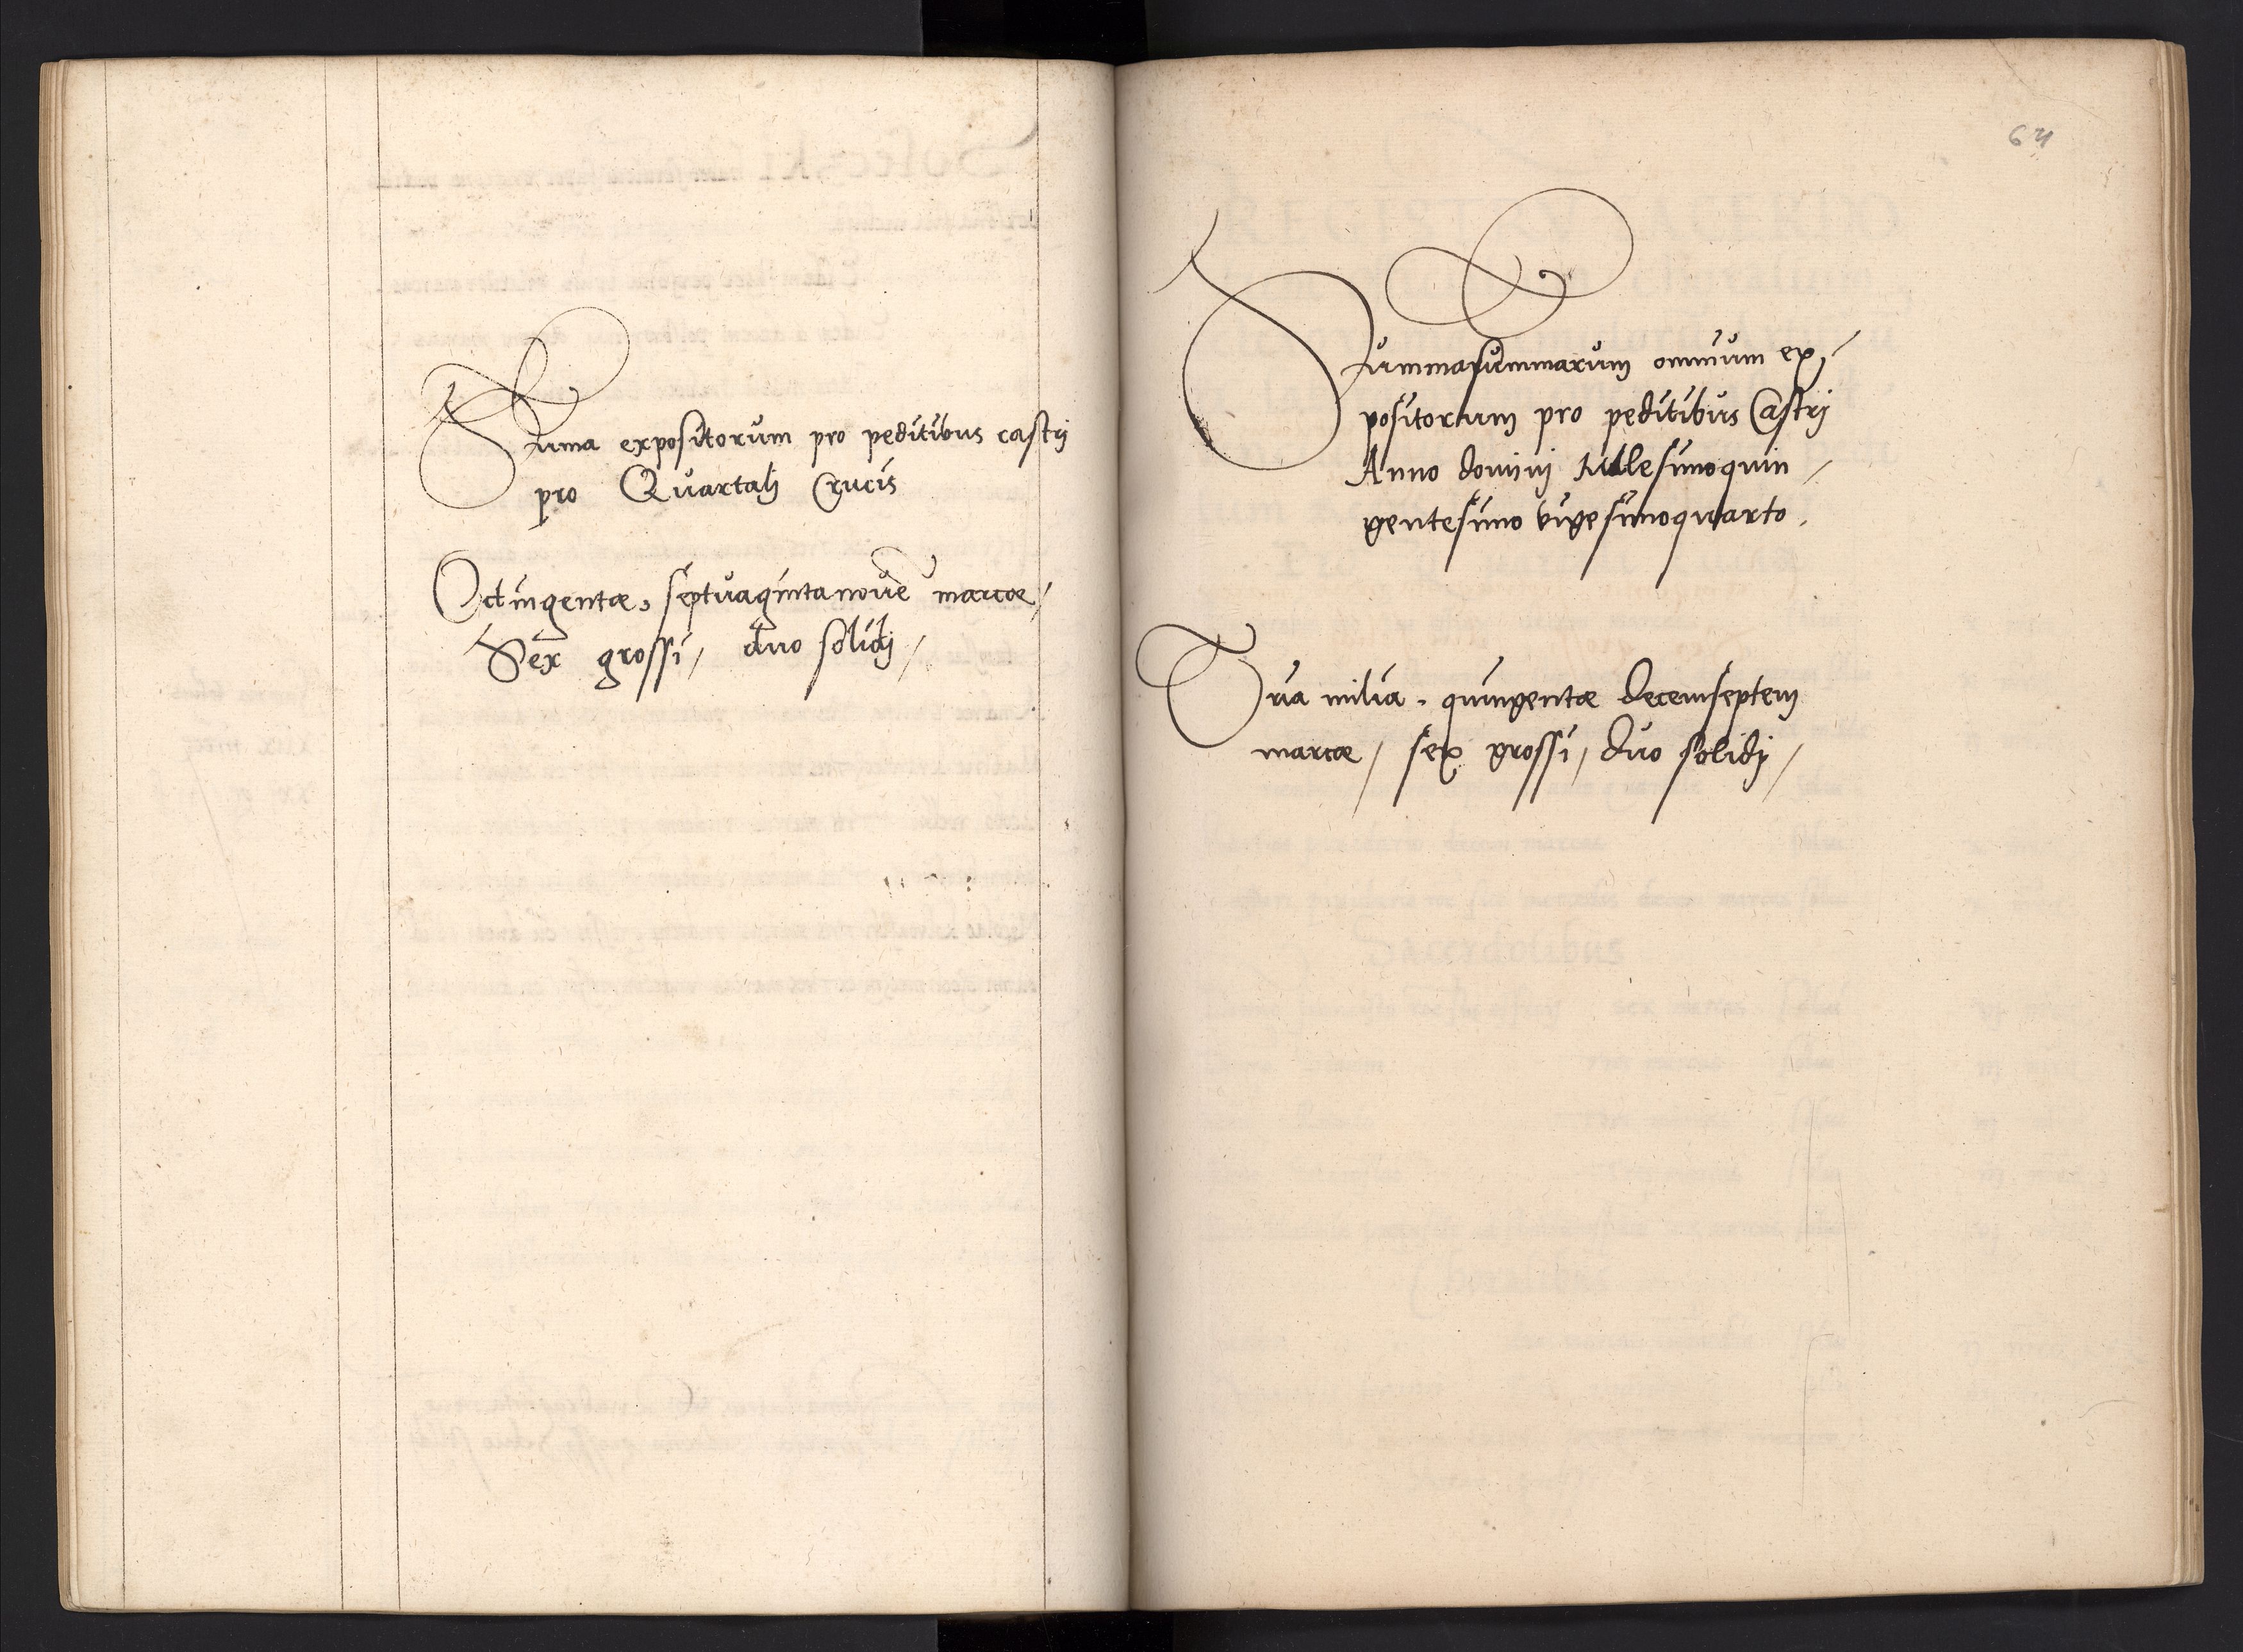 Suma expositorum pro peditibus castrj
pro Quartalj Crucis
Octingentæ, septuagintanouē marcæ /
Sex grossi / duo solidj /
64
Summasummarum omnium ex/
positorum pro peditibus Castrj
Anno dominj Millesimoquin /
gentesimo vigesimoquarto.
Tria milia. quingentæ decemseptem
marcæ / sex grossi / duo solidj /